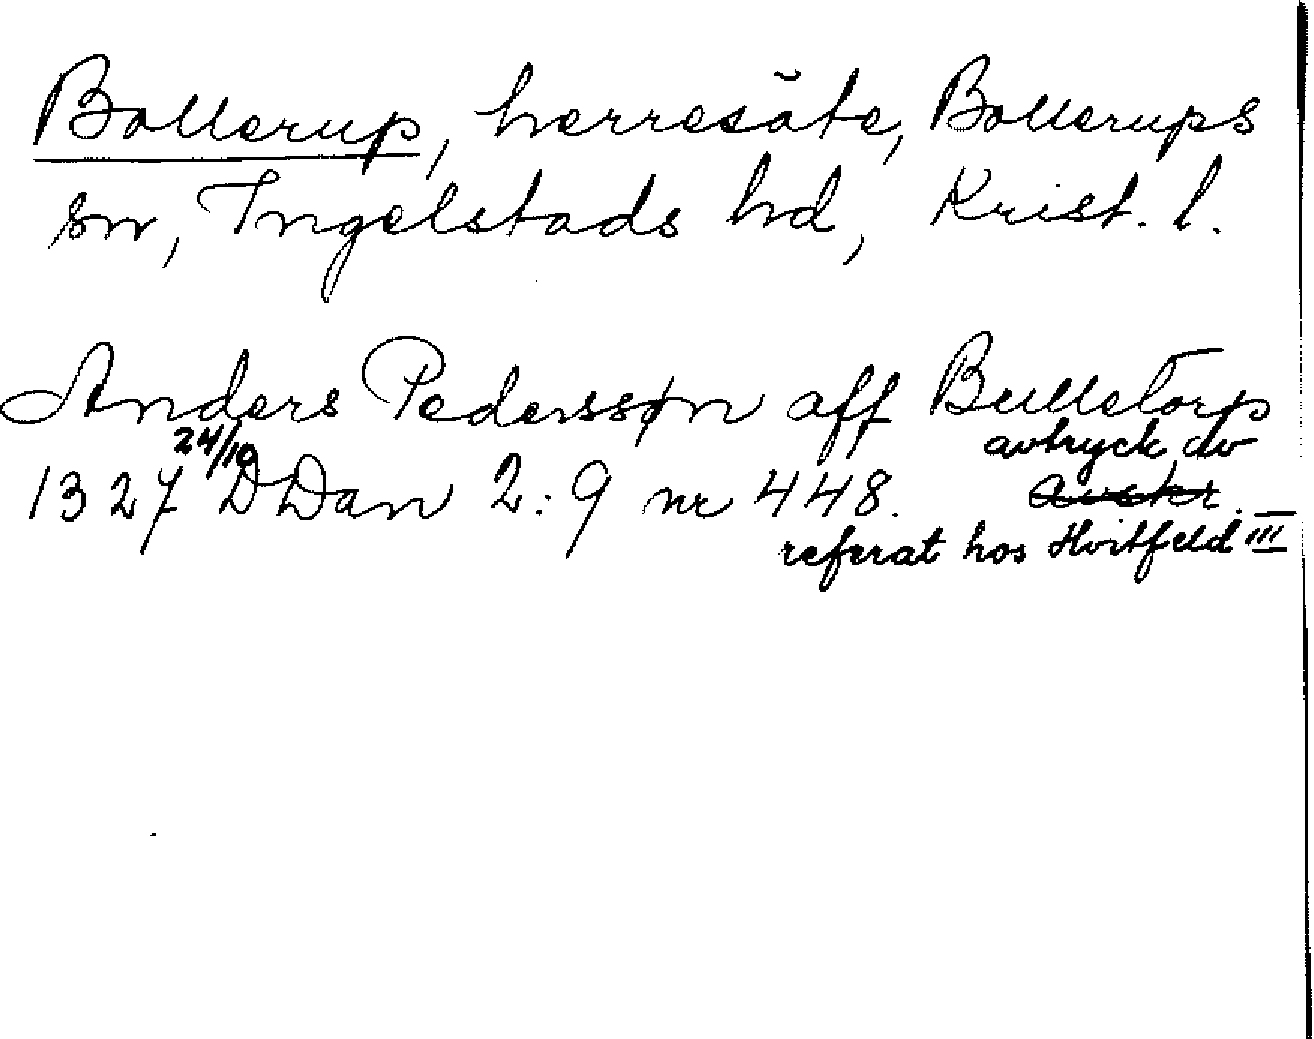 Bollerup, herresäte, Bollerups
sn, Ingelstads hd, Krist. l.
Anders Pederssøn aff Bulletorp
1327 24/10 DDan 2:9 nr 448. avtryck av
avskr. –
referat hos Hvitfeld III